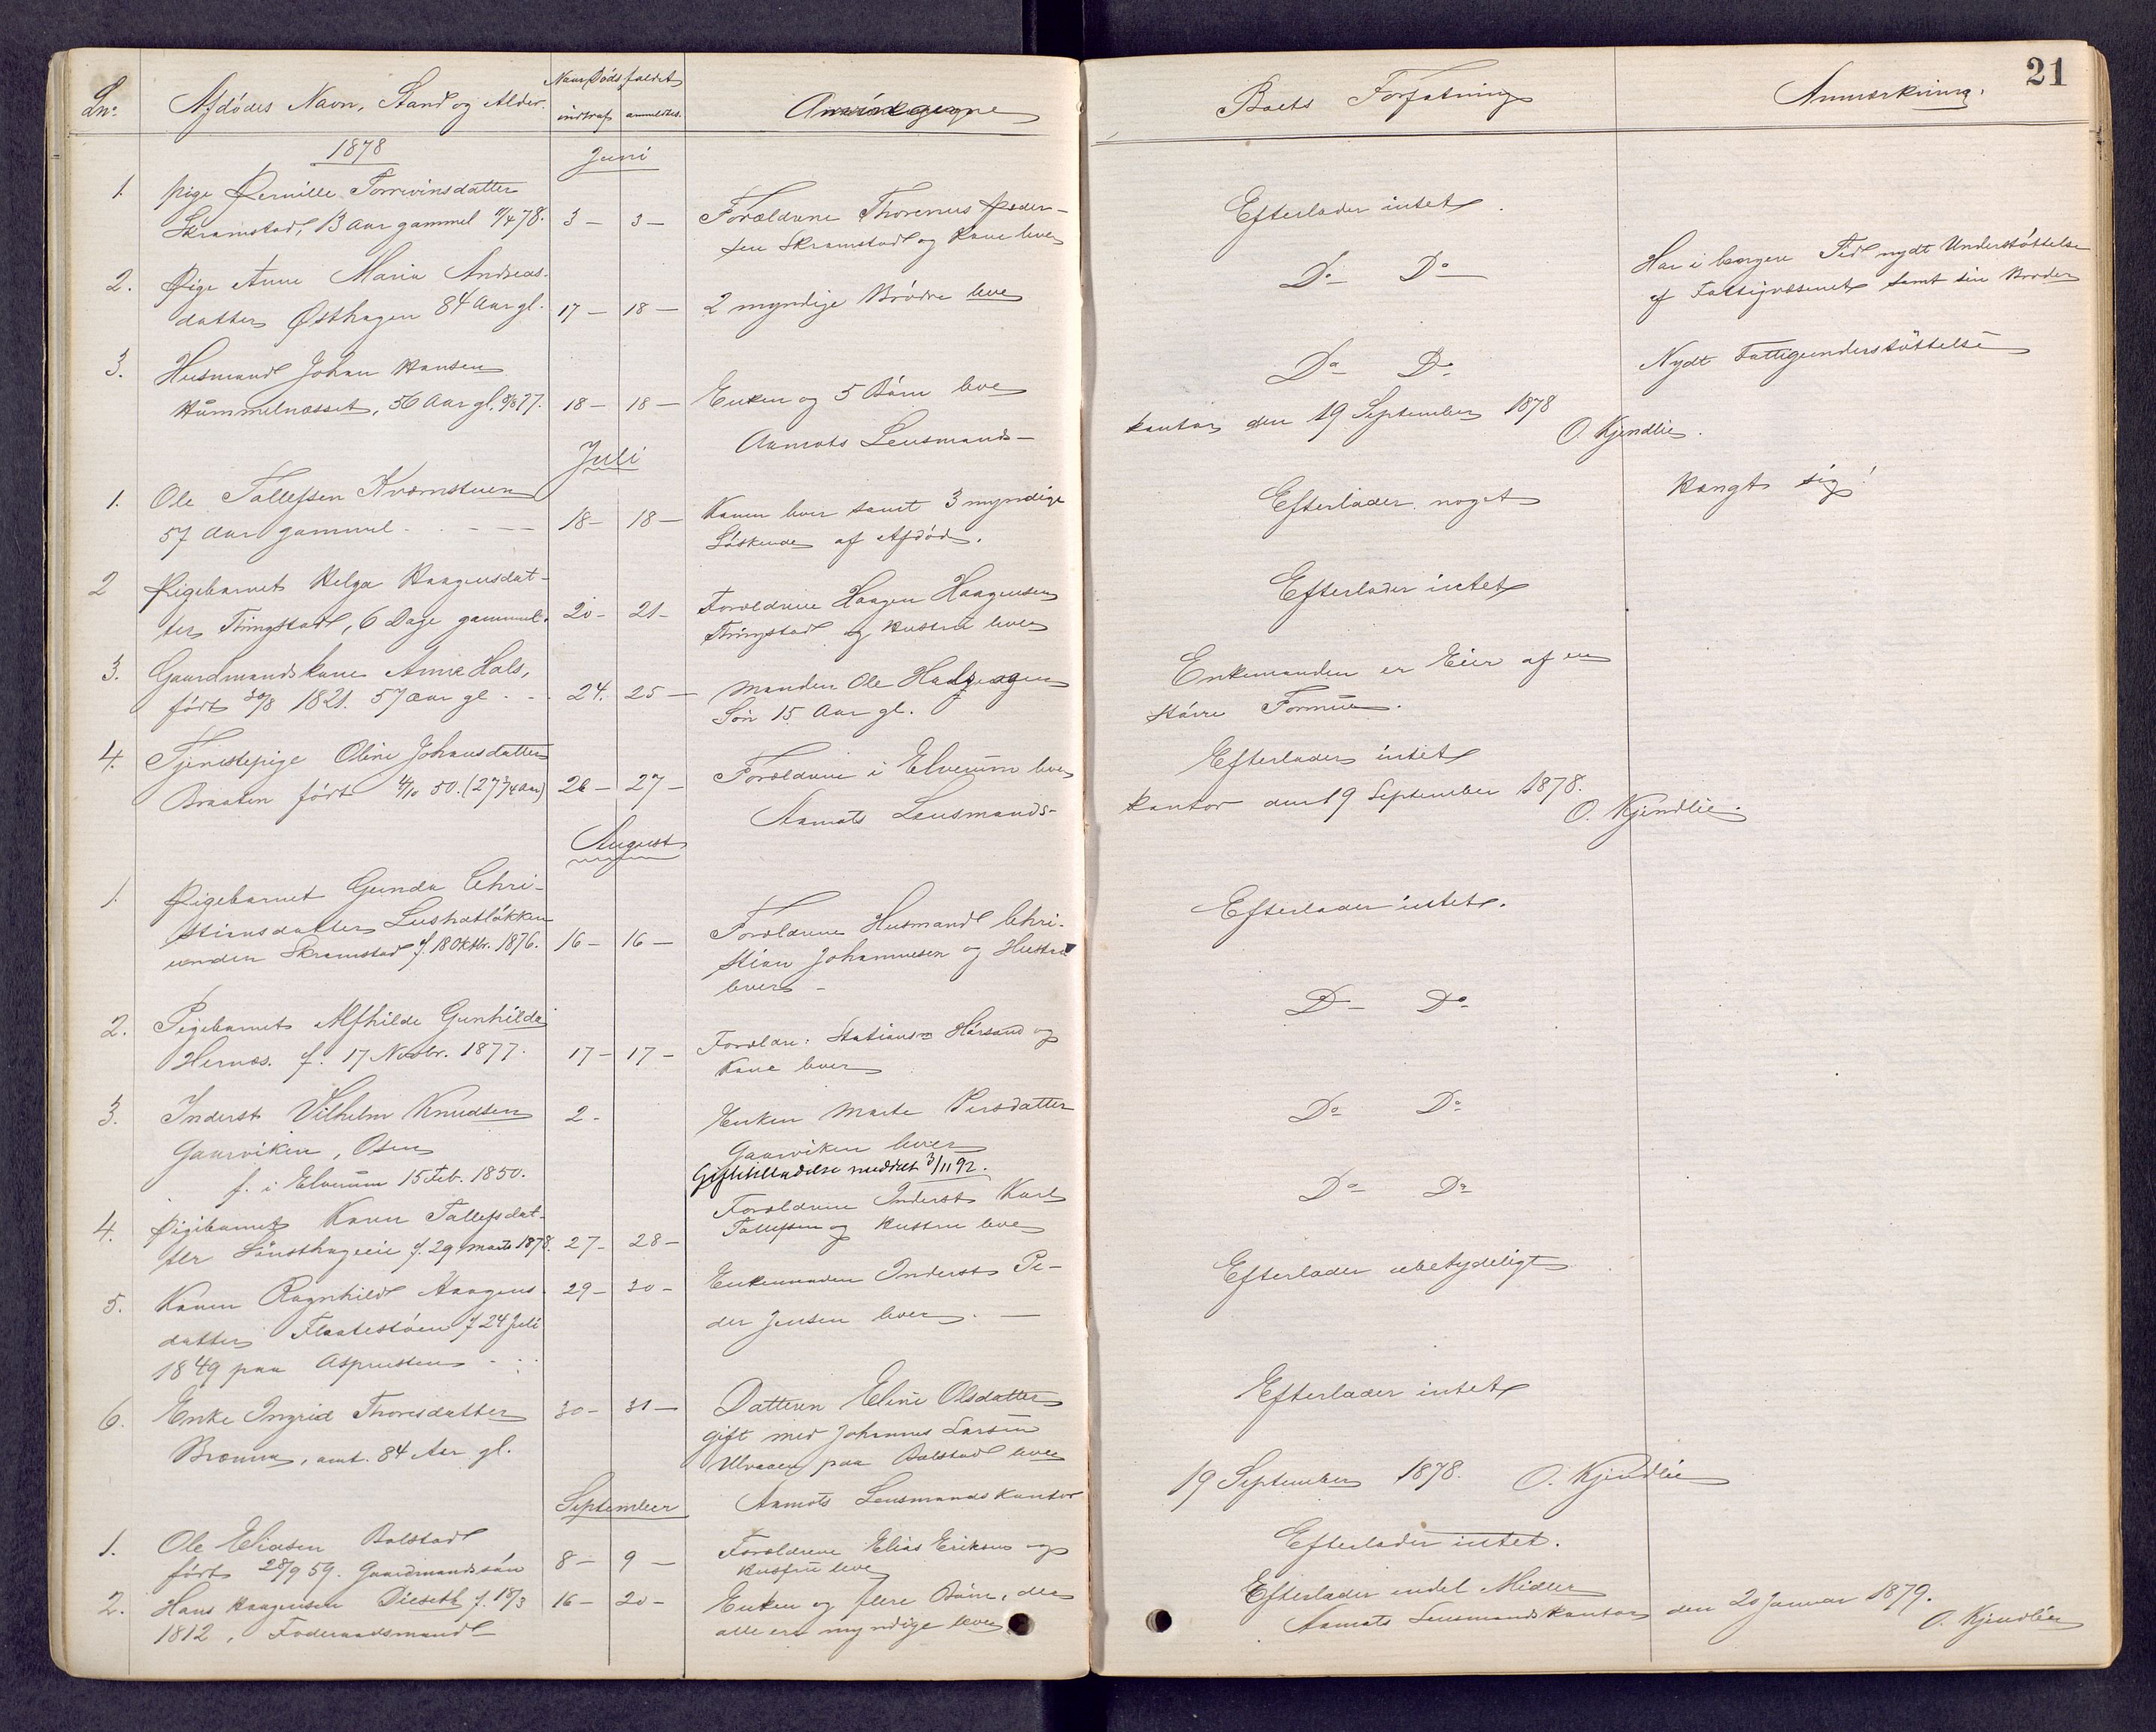 21
Lnº Afdødes Navn, Stand og Alder. Naar Dødsfaldet indtraf anmeldtes. Boets Forfatning Anmærkning.
1878 Juni
1. Pige Pernille Torrevinsdatter Efterlader intet.
Skramstad, 13 Aar gammel 78. 3 – 3 – Forældrene Thorenus Peder-
sen Skramstad og Kone lever
2. Pige Anne Maria Andreas- Dº Dº Har i længere Tid nydt Understøttelse
datter Østhagen 84 Aar gl. 17 – 18 – 2 myndige Brødre leve af Fattigvæsenet samt sin Broder
3. Husmand Johan Hansen Dº Dº Nydt Fattigunderstøttelse
Hummelnæsset, 56 Aar gl. 77. 18 – 18 – Enken og 5 Børn leve
Aamots Lensmands- kontor den 19 September 1878 O. Kjendlie.
Juli
1. Ole Tollefsen Kværnstuen Efterlader noget Hængt sig!
57 Aar gammel 18 – 18 – Konen lever samt 3 myndige
Søskende af Afdøde.
2 Pigebarnet Helga Haagensdat- Efterlader intet
ter Thingstad, 6 Dage gammel. 20 – 21 – Forældrene Haagen Haagensen
Thingstad og Hustru lever
3. Gaardmandskone Anne Hals, Enkemanden er Eier af en
født 30/8 1821. 57 Aar gl. 24. 25 – Manden Ole større Formue.
Søn 15 Aar gl.
4. Tjenestepige Oline Johansdatter Efterlader intet
Braaten født 4/10 50. (27 3/4 Aar) 26 – 27 – Forældrene i Elverum lever
Aamots Lensmands- kontor den 19 September 1878. O. Kjendlie.
August
1. Pigebarnet Gunda Chri- Efterlader intet.
stiansdatter
under Skramstad f. 18 Oktbr. 1876. 16 – 16 – Forældrene Husmand Chri-
stian Johannesen og Hustru
lever –
2. Pigebarnet Alfhilde Gunhilda Dº Dº
Hernæs. f. 17 Novbr. 1877. 17 – 17 – Forældre: Hårsand og
Kone lever
3. Inderst Vilhelm Knudsen 2 – Enken Marte Persdatter Dº Dº
Gaarviken, Osen Gaarviken lever
f. i Elverum 15 Feb. 1850. Giftetilladelse meddelt 3/11 92.
4. Pigebarnet Karen Tollefsdat- Forældrene Inderst Karl Dº Dº
ter f. 29 Marts 1878. 27 – 28 – Tollefsen og Hustru leve
5. Konen Ragnhild Haagens- 29 – 30 – Enkemanden Inderst Pe- Efterlader ubetydeligt
datter Flaatestøen f 24 Juli der Jensen lever. –
1849 paa
6. Enke Ingrid Thoresdatter 30 – 31 – Datteren Eline Olsdatter Efterlader intet
Brænna, omt. 84 Aar gl. gift med Johannes Larsen
Ulvaaen paa Bolstad lever
September Aamots Lensmandskontor 19 September 1878. O. Kjendlie
1. Ole Eliasen Bolstad Efterlader intet.
født 28/9 59. Gaardmandssøn 8 – 9 – Forældrene Elias Eriksen og
Hustru leve
2. Hans Haagensen Diesetb f. 18/3 16 – 20 – Enken og flere Børn, der Efterlader endel Midler
1812, Føderaadsmand alle ere myndige leve Aamots Lensmandskontor den 20 Januar 1879.
O. Kjendlie